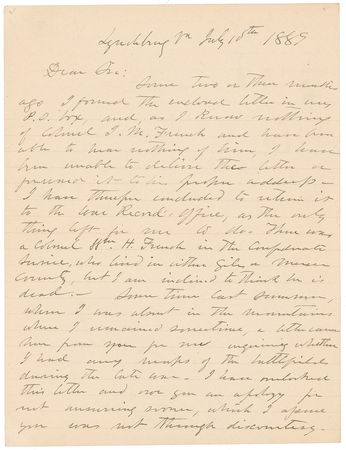 Lynchburg Va July 10th 1889
Dear Sir:
Some two or three months
ago I found the enclosed letter in my
P.O. box, and, as I know nothing
of Colonel J. M. French and have been
able to hear nothing of him, I have
been unable to deliver the letter or
forward it to his proper address –
I have therefore concluded to return it
to the War Record Office, as the only
thing left for me to do. There was
a Colonel Wm H. French in the Confederate
Service, who lived in either Giles or Mercer
County, but I am inclined to think he is
dead – Some time last summer,
when I was absent in the mountains
where I remained sometime, a letter came
here from you for me enquiring whether
I had any maps of the battlefields
during the late war. I have overlooked
this letter and owe you an apology for
not answering sooner, which I assure
you was not through discourtesy.